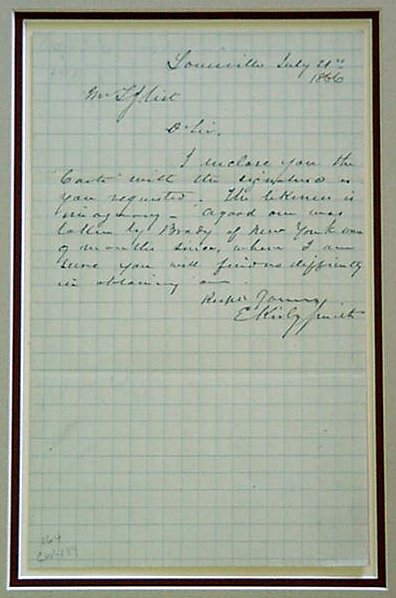 Louisville July 21st
1866
Mr
Dr Sir,
I enclose you the
"Carte" with the signature as
you requested. The likeness is
imaginary - A good one was
taken by Brady of New York some
9 months since, where I am
sure you will find no difficulty
in obtaining one.
Respc Yours
E Kirby Smith